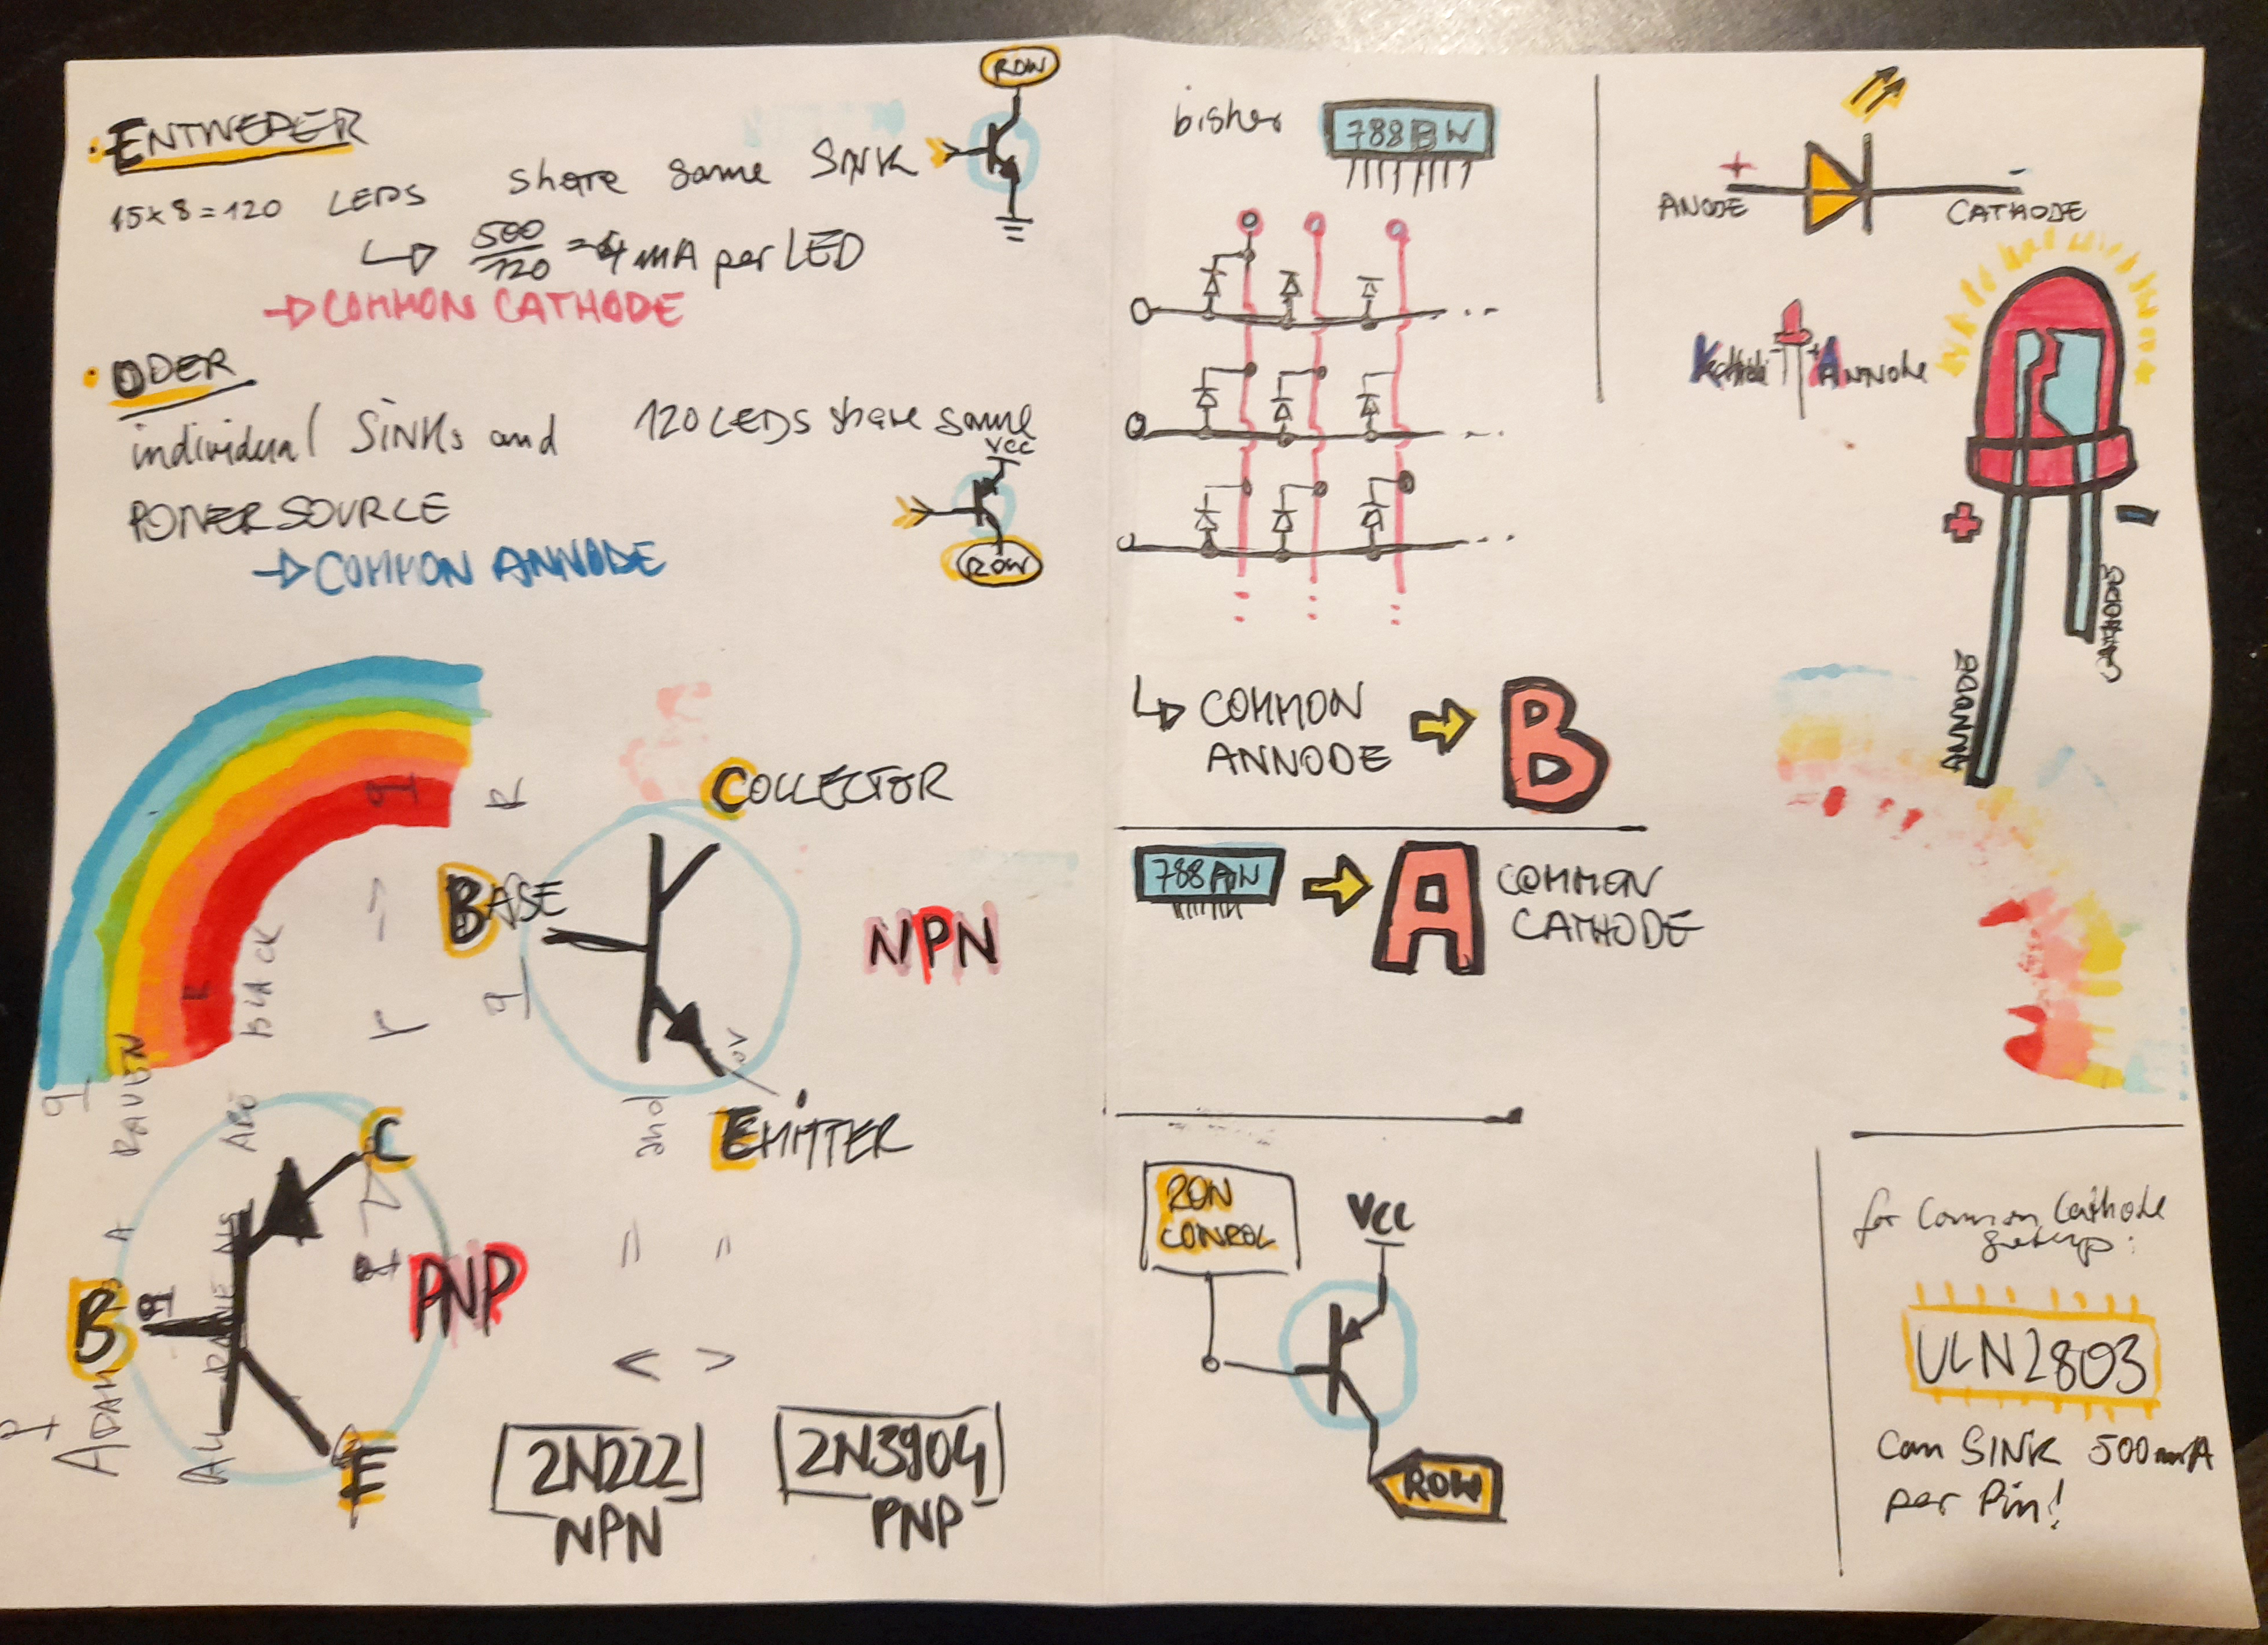 ENTWEDER
15x8=120 LEDS share same SINK
ROW
500
120
=4 mA per LED
COMMON CATHODE
ODER
individual SINKs and 120 LEDS share same
VCC
POWERSOURCE
ROW
COMMON ANNODE
COLLECTOR
BASE
NPN
EMITTER
and
0V
BLACK
ARE
RAVEN
A
C
B
PNP
E
2N222
NPN
2N3904
PNP
bisher
788BW
+
-
ANODE
CATHODE
Kathode
- +
ANNode
+
-
ANODE
CATHODE
COMMON
ANNODE
B
788AW
A
COMMON
CATHODE
ROW
CONROL
VCC
ROW
for Common Cathode
setup:
ULN2803
Can SINK 500mA
per Pin!